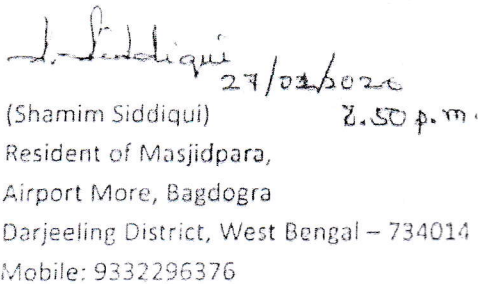 S. Siddiqui
27/02/2020
(Shamim Siddiqui) 2.50 p.m.
Resident of Masjidpara,
Airport More, Bagdogra
Darjeeling District, West Bengal – 734014
Mobile: 9332296376